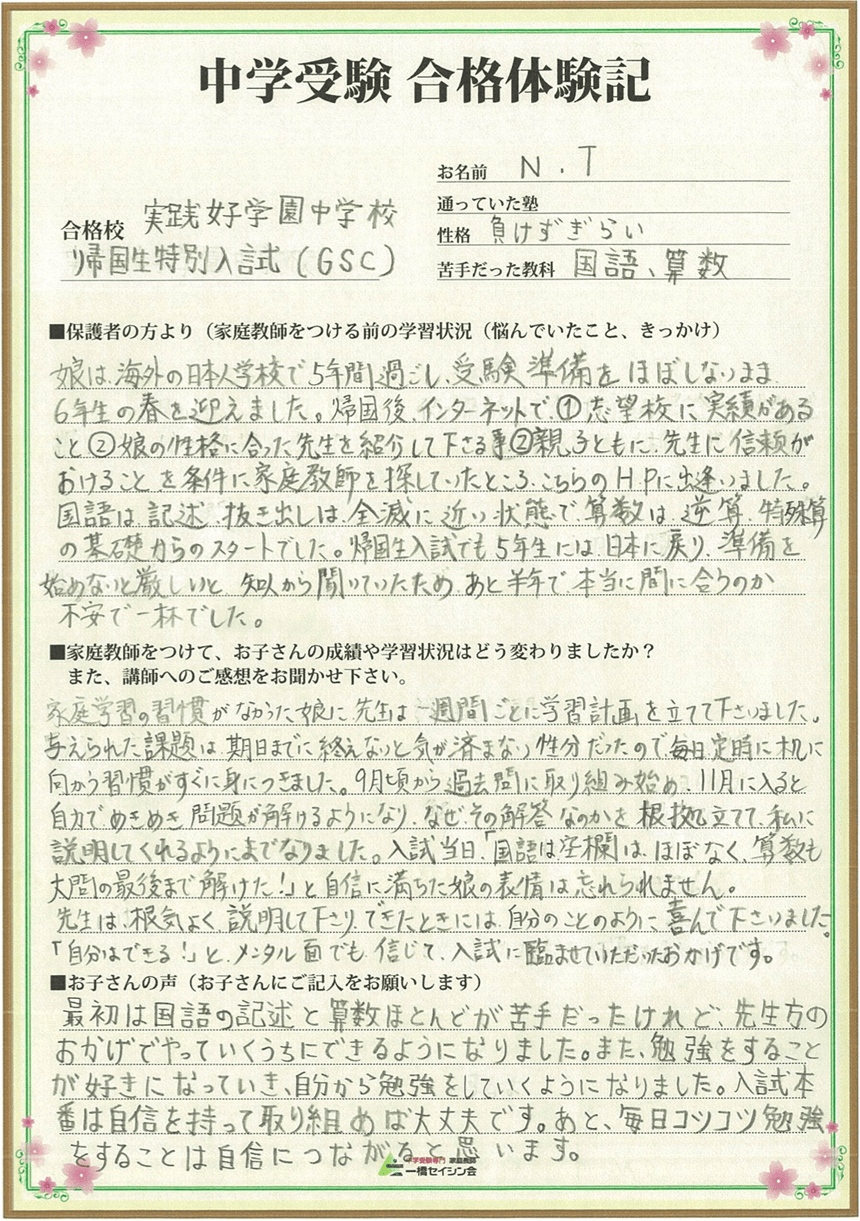 中学受験 合格体験記
お名前 N.T
通っていた塾
性格 負けずぎらい
苦手だった教科 国語、算数
合格校 実践女子学園中学校
帰国生特別入試(GSC)
■保護者の方より(家庭教師をつける前の学習状況(悩んでいたこと、きっかけ)
娘は、海外の日本人学校で5年間過ごし、受験準備をほぼしないまま
6年生の春を迎えました。帰国後、インターネットで、①志望校に実績がある
こと②娘の性格に合った先生を紹介して下さる事②親子ともに、先生に信頼が
おけることを条件に家庭教師を探していたところ、こちらのH.Pに出逢いました。
国語は、記述、抜き出しは、全滅に近い状態で、算数は、逆算、特殊算
の基礎からのスタートでした。帰国生入試でも5年生には、日本に戻り、準備を
始めないと厳しいと、知人から聞いていたため、あと半年で、本当に間に合うのか
不安で一杯でした。
■家庭教師をつけて、お子さんの成績や学習状況はどう変わりましたか?
また、講師へのご感想をお聞かせ下さい。
家庭学習の習慣がなかった娘に、先生は一週間ごとに学習計画を立てて下さいました。
与えられた課題は期日までに終えないと気が済まない性分だったので、毎日定時に机に
向かう習慣がすぐに身につきました。9月頃から過去問に取り組み始め、11月に入ると
自力でめきめき問題が解けるようになり、なぜその解答なのかを根拠立てて、私に
説明してくれるようにまでなりました。入試当日、「国語は空欄は、ほぼなく、算数も
大問の最後まで解けた!」と自信に満ちた娘の表情は忘れられません。
先生は、根気よく説明して下さり、できたときには、自分のことのように喜んで下さいました。
「自分はできる!」と、メンタル面でも信じて、入試に臨ませていただいたおかげです。
■お子さんの声(お子さんにご記入をお願いします)
最初は国語の記述と算数ほとんどが苦手だったけれど、先生方の
おかげでやっていくうちにできるようになりました。また、勉強をすること
が好きになっていき、自分から勉強をしていくようになりました。入試本
番は自信を持って取り組めば大丈夫です。あと、毎日コツコツ勉強
をすることは自信につながると思います。
中学受験専門 家庭教師
一橋セイシン会